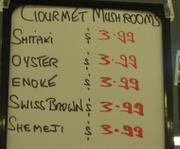 GOURMET MUSHROOMS
SHITAKI $ 3.99
OYSTER $ 3.99
ENOKE $ 3.99
SWISS BROWN $ 3.99
SHEMEJI $ 3.99